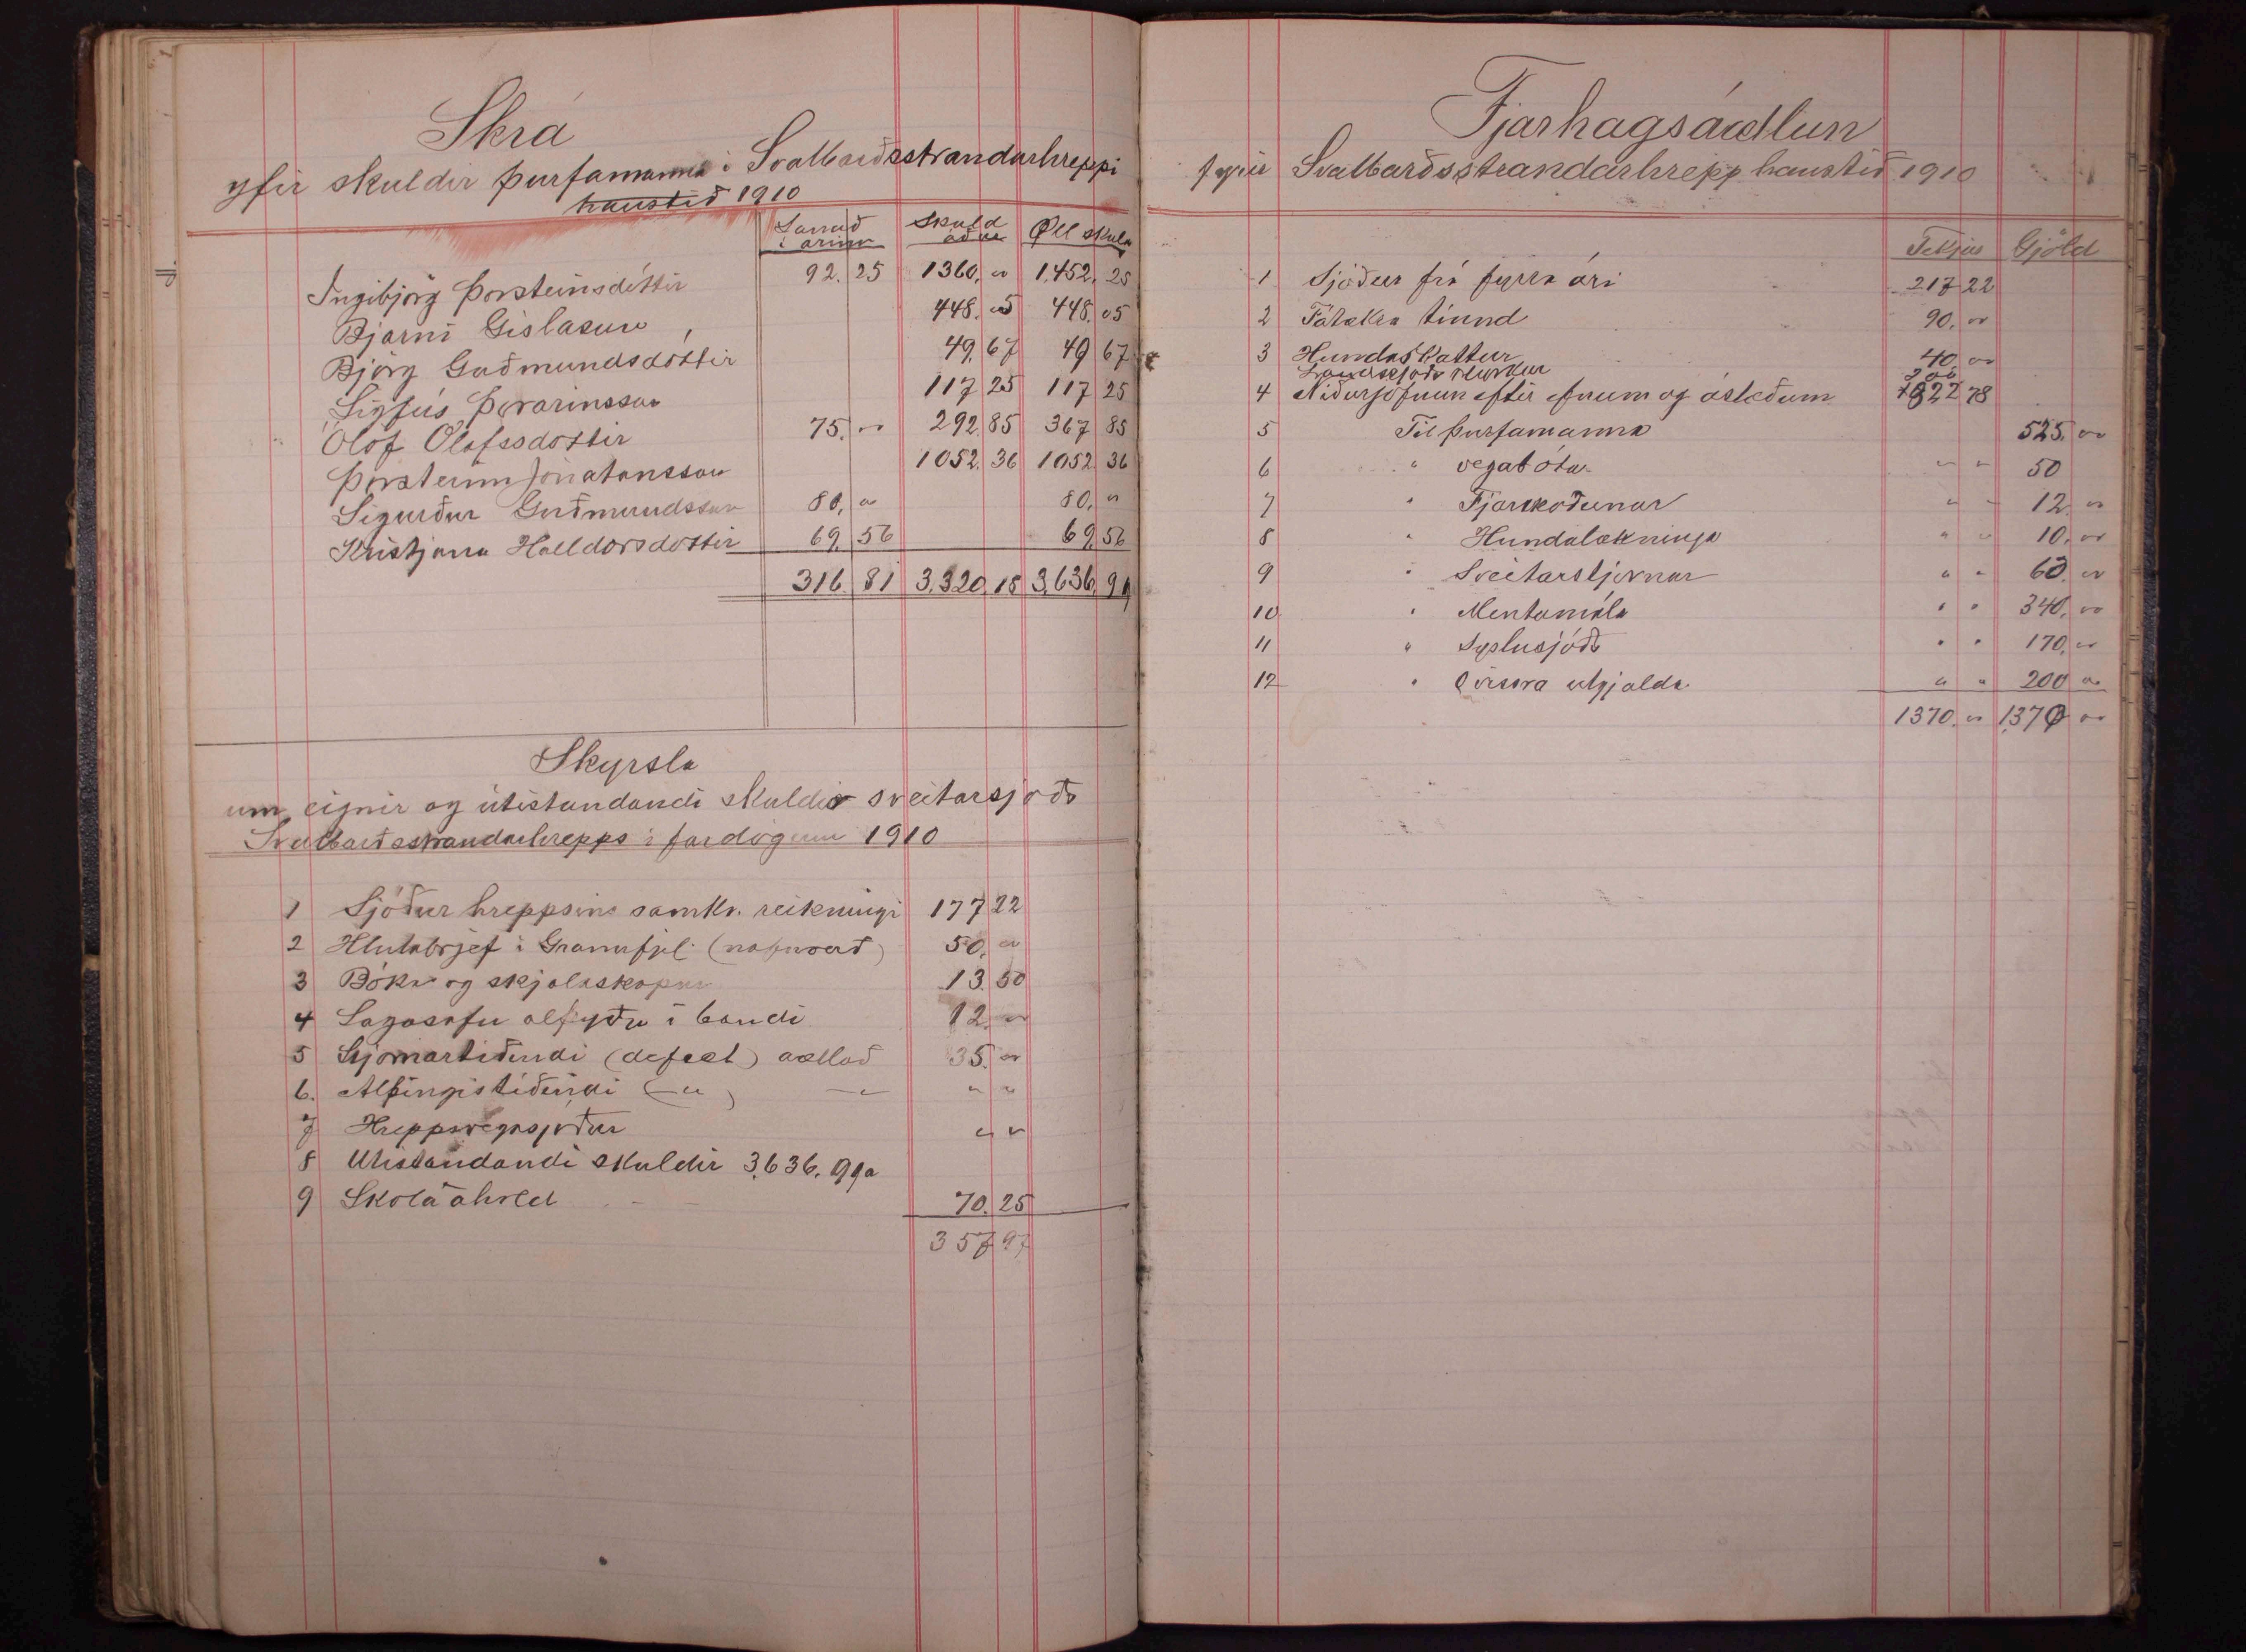 Skrá
yfir skuldir þurfamanna í Svalbarðsstrandarhreppi
haustið 1910
Lánað í árinu Skuld áður Öll skuld
Ingibjörg Þorsteinsdóttir 92. 25 1360, " 1,452, 25
Bjarni Gislason 448. 05 448. 05
Björg Guðmundsdóttir 49, 67 49 67
Sigfús Þórarinsson 117 25 117 25
Ólöf Olafssdóttir 75. " 292. 85 367 85
Þorsteinn Jónatansson 1052. 36 1052. 36
Sigurður Guðmundsson 80, " 80, "
Kristjana Halldórsdóttir 69. 56 69. 56
316. 81 3,320, 18 3,636, 99
Skyrsla
um eignir og útistandandi skuldir sveitarsjóðs
Svalbarðsstrandarhrepps í fardögum 1910
1 Sjóður hreppsins samkv. reikningi 177 22
2 Hlutabrjef í Gránufjel. (nafnverð) 50, "
3 Bóka og skjalaskápur 13. 50
4 Lagasafn alþyðu í bandi 12. "
5 Stjórnartíðindi (defect) áætlað 35. "
6. Alþingistíðindi ( " ) — " " "
7 Hreppsvegasjóður " "
8 Utistandandi skuldir 3,636. 99a
9 Skólaáhöld 70. 25
357 97
Fjarhagsáætlun
fyrir Svalbarðsstrandarhrepp haustið 1910
Tekjur Gjöld
1 Sjóður frá fyrra ári 217 22
2 Fátækra tíund 90. "
3 Hundaskattur 40 "
Landssjóðs styrkur 200
4 Niðurjöfnun eftir efnum og ástæðum 822 78
5 Til þurfamanna 525. "
6 " vegabóta " " 50
7 " Fjárskoðunar " " 12. "
8 " Hundalækninga " " 10. "
9 " Sveitarstjórnar " " 63. "
10. " Mentamála " " 340. "
11 " Syslusjóðs " " 170. "
12 " Ovissra utgjalda " " 200 "
1370. " 1,370 "